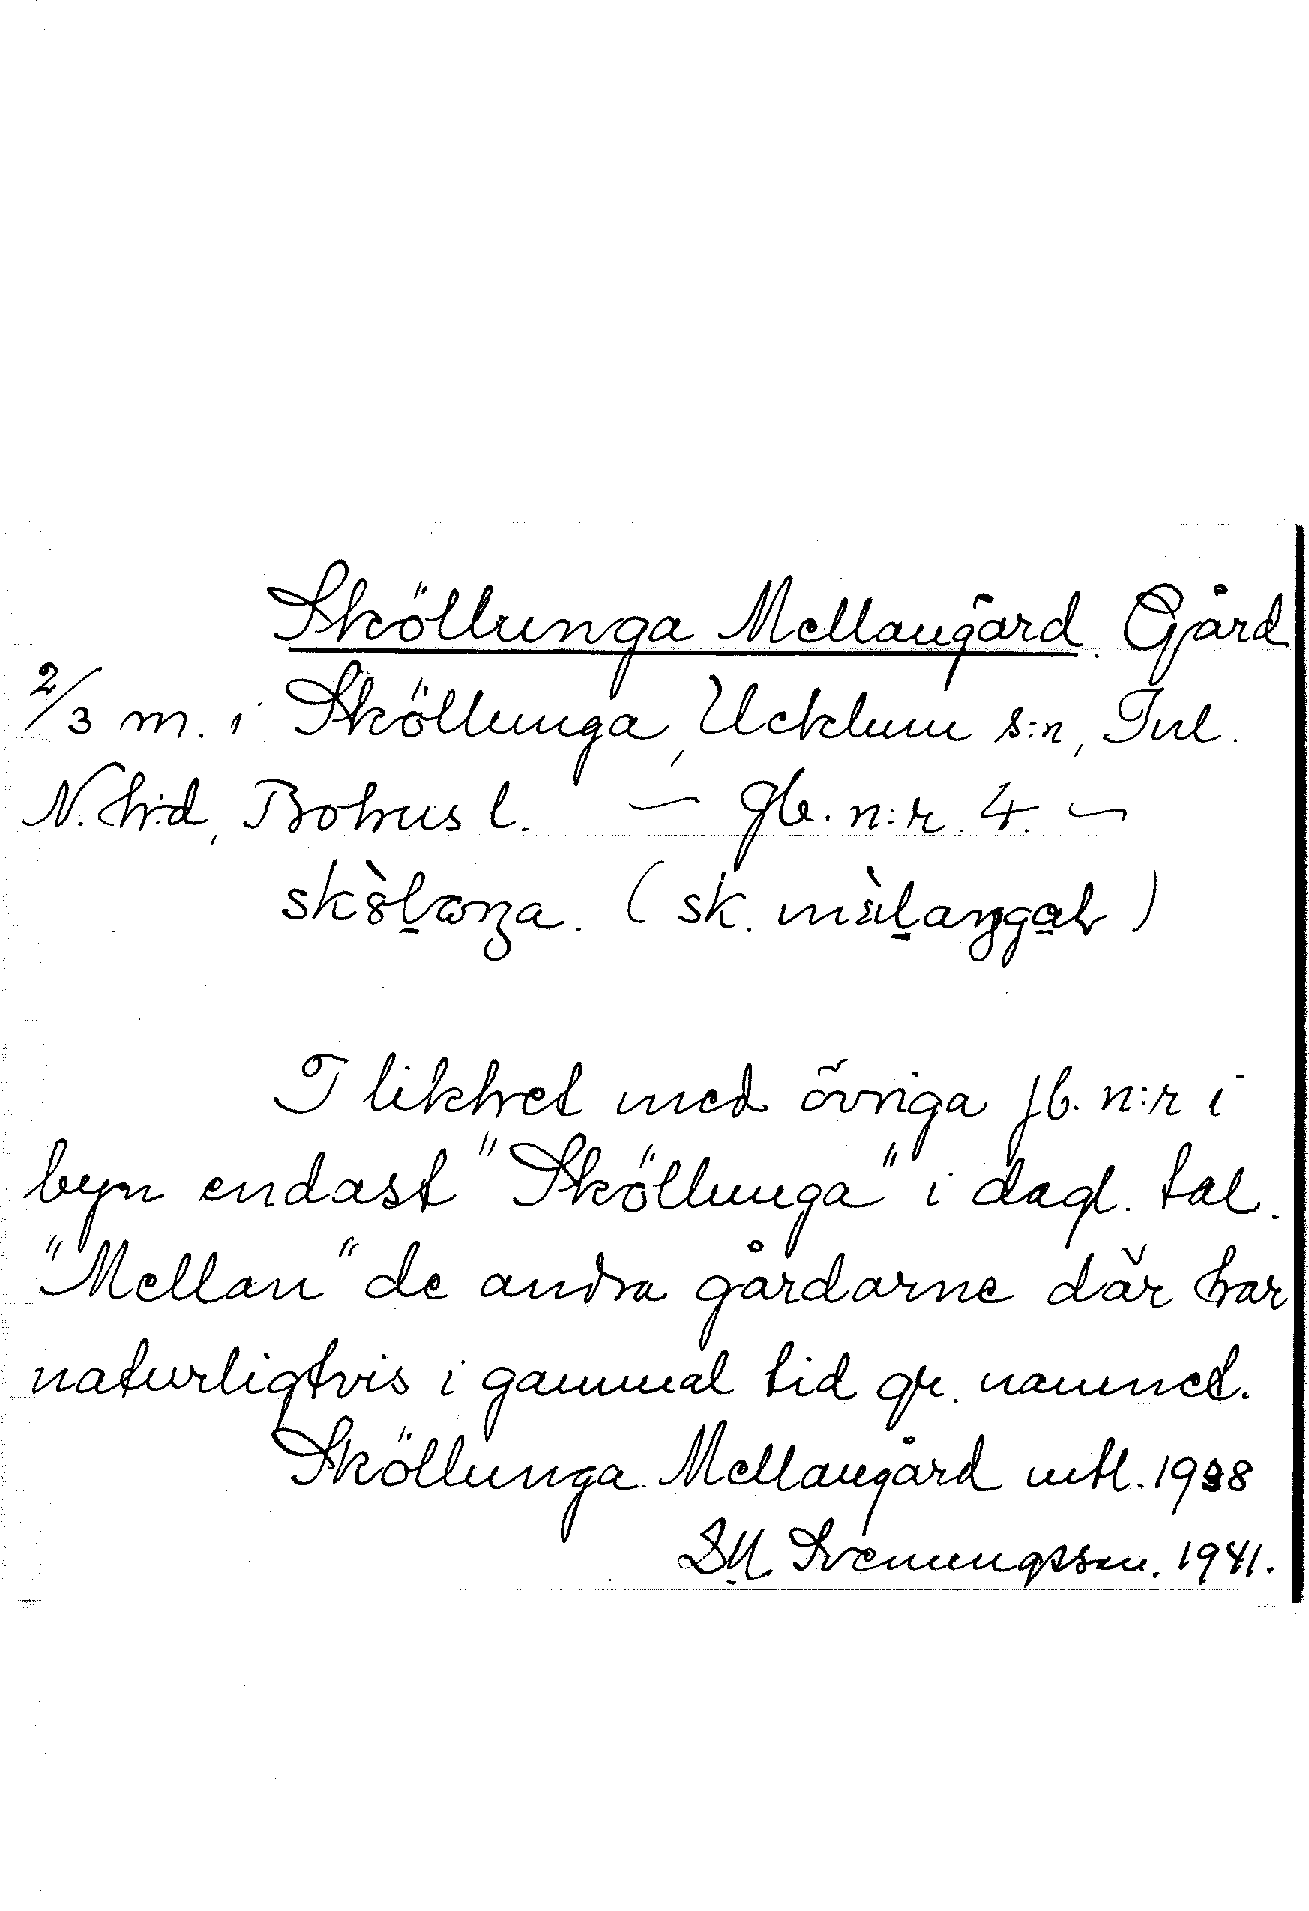 Sköllunga Mellangård. Gård
2/3 m. i Sköllunga, Ucklum s:n, Inl.
N. h:d, Bohus l. — jb. n:r. 4. —
I likhet med övriga jb. n:r i
byn endast "Sköllunga" i dagl. tal.
"Mellan" de andra gårdarne där har
naturligtvis i gammal tid gr. namnet.
Sköllunga Mellangård mtl. 1938
SM Svenungsson. 1941.